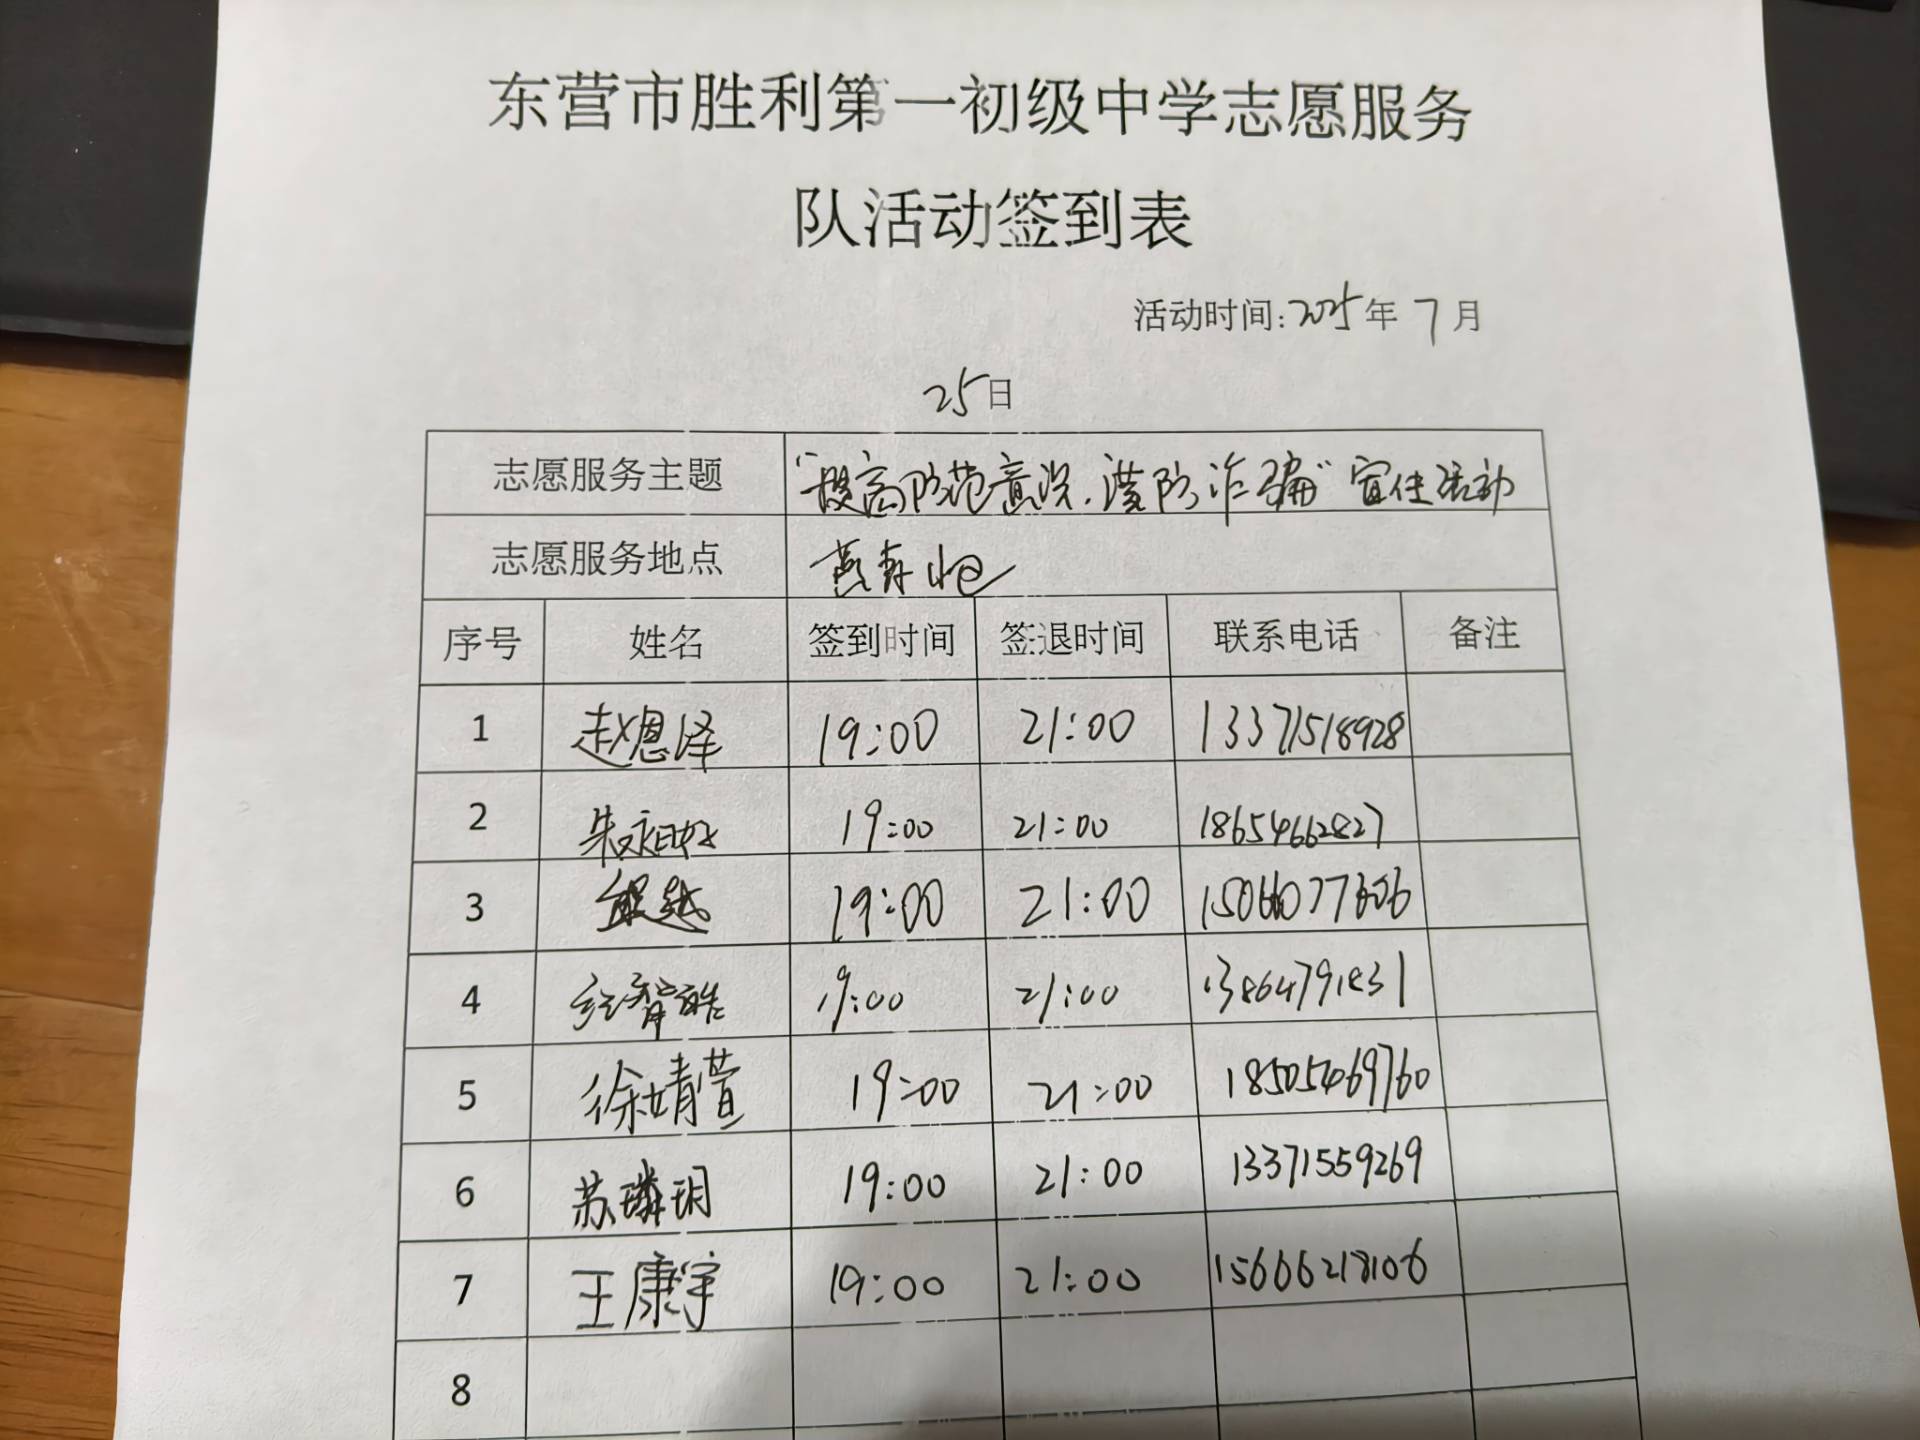 东营市胜利第一初级中学志愿服务
队活动签到表
活动时间:2025年 7月
25日
志愿服务主题 "提高防范意识,谨防诈骗"宣传活动
志愿服务地点
序号 姓名 签到时间 签退时间 联系电话 备注
1 赵恩泽 19:00 21:00 13371518928
2 19:00 21:00 18654662827
3 19:00 21:00
4 19:00 21:00
5 徐婧萱 19:00 21:00 18505469760
6 苏璘玥 19:00 21:00 13371559269
7 王康宇 19:00 21:00 15666218106
8